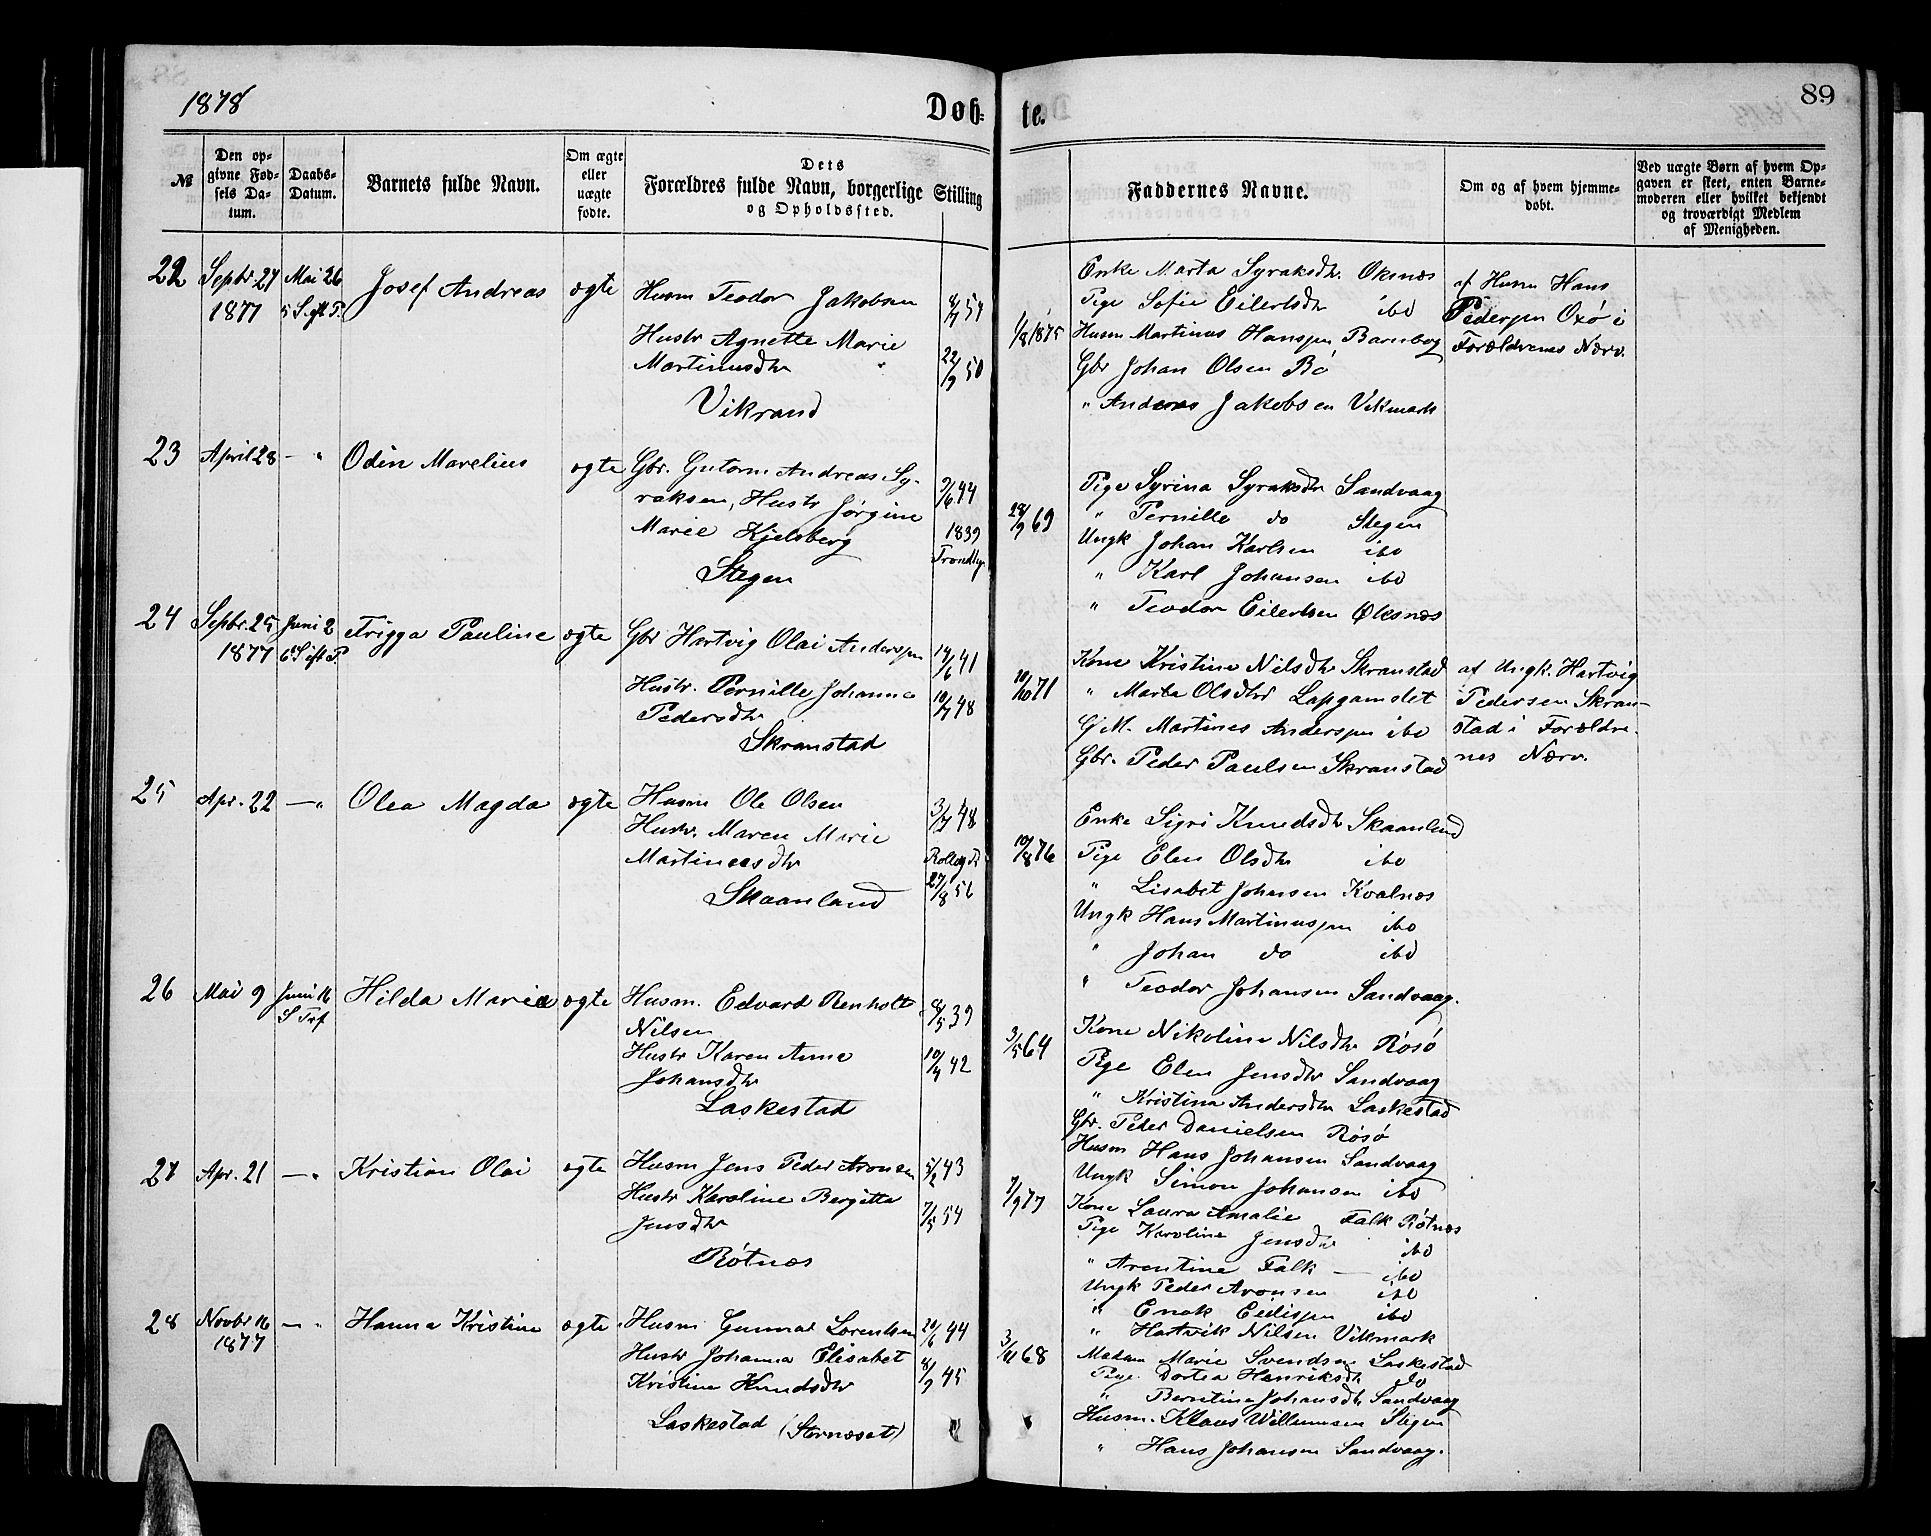 1878
Døb-
te.
89
№
Den op-
givne Fød-
sels Da-
tum.
Daabs-
Datum.
Barnets fulde Navn.
Om ægte
eller
uægte
fødte.
Dets
Forældres fulde Navn, borgerlige Stilling
og Opholdssted.
Faddernes Navne.
Om og af hvem hjemme-
døbt.
Ved uægte Børn af hvem Op-
gaven er skeet, enten Barne-
moderen eller hvilket bekjendt
og troværdigt Medlem
af Menigheden.
22
Septbr. 27
1877
Mai 26
5 S. eft P.
Josef Andreas
ægte
Husm Teodor Jakobsen
Hustr Agnette Marie
Martinusdtr
Vikrand
22/9 50
1/8 1875
Enke Marta Syraksdtr. Øksnes
Pige Sofie Eilertsdtr ibd
Husm Martinus Hanssen Barnbog
Gbr Johan Olsen Bø
" Andreas Jakobsen Vikmark
af Husm Hans
Pederssen Oxø i
Forældrenes Nærv.
23
April 28
— "
Odin Marelius
ægte
Gbr. Gutorm Andreas Sy-
raksen, Hustr Jørgine
Marie Kjelsberg
Stegen
9/6 44
1839
Trondhj.
28/9 69
Pige Syrina Syraksdtr Sandvaag
" Pernille do Stegen
Ungk Johan Karlsen ibd
" Karl Johansen ibd
" Teodor Eilertsen Øksnæs
24
Septbr. 25
1877
Juni 2
6 S eft P.
Frigga Pauline
ægte
Gbr Hartvig Olai Anderssen
Hustr. Pernille Johanna
Pedersdtr
Skranstad
14/6 41
10/7 48
10/10 71
Kone Kristine Nilsdtr Skranstad
" Marta Olsdtr Lapgamslet
G M. Martines Anderssen ibd
Gbr. Peder Paulsen Skranstad
af Ungk. Hartvig
Pedersen Skran-
stad i Forældre-
nes Nærv.
25
Apr. 22
— "
Olea Magda
ægte
Husm Ole Olsen
Hustr. Maren Marie
Martinesdtr
Skaanland
3/7 48
27/8 56
10/8 76
Enke Sigri Knudsdtr Skaanland
Pige Elen Olsdtr ibd
" Lisabet Johansen Kvalnes
Ungk Hans Martinussen ibd
" Johan do ibd
" Teodor Johansen Sandvaag.
26
Mai 9
Juni 16
S Tref
Hilda Maria
ægte
Husm. Edvard Renholt
Nilsen
Hustr Karen Anne
Johansdtr
Laskestad
8/5 39
10/4 42
3/5 64
Kone Nikoline Nilsdtr Røsø
Pige Elen Jensdtr Sandvaag
" Kristina Andersdtr Laskestad
Gbr. Peder Danielsen Røsø
Husm Hans Johansen Sandvaag
Ungk Simon Johansen ibd
27
Apr. 21
— "
Kristian Olai
ægte
Husm Jens Peder Aronsen
Hustr Karoline Bergitta
Jensdtr
Røtnæs
5/2 43
7/5 54
7/9 77
Kone Laura Amalie Falk Røtnæs
Pige Karoline Jensdtr ibd
" Arentine Falk — ibd
Ungk Peder Aronsen ibd
" Enok Eidissen ibd
" Hartvik Nilsen Vikmark
28
Novbr 16
1877
— "
Hanna Kristine
ægte
Husm Gunnar Lorentsen
Hustr Johanna Elisabet
Kristine Knudsdtr
Laskestad (Stornæset)
20/6 44
8/9 45
3/11 68
Madam Marie Svendsen Laskestad
Pige Dortea Henriksdtr do
" Berntina Johansdtr Sandvaag
Husm. Klaus Willumsen Stegen
" Hans Johansen Sandvaag.